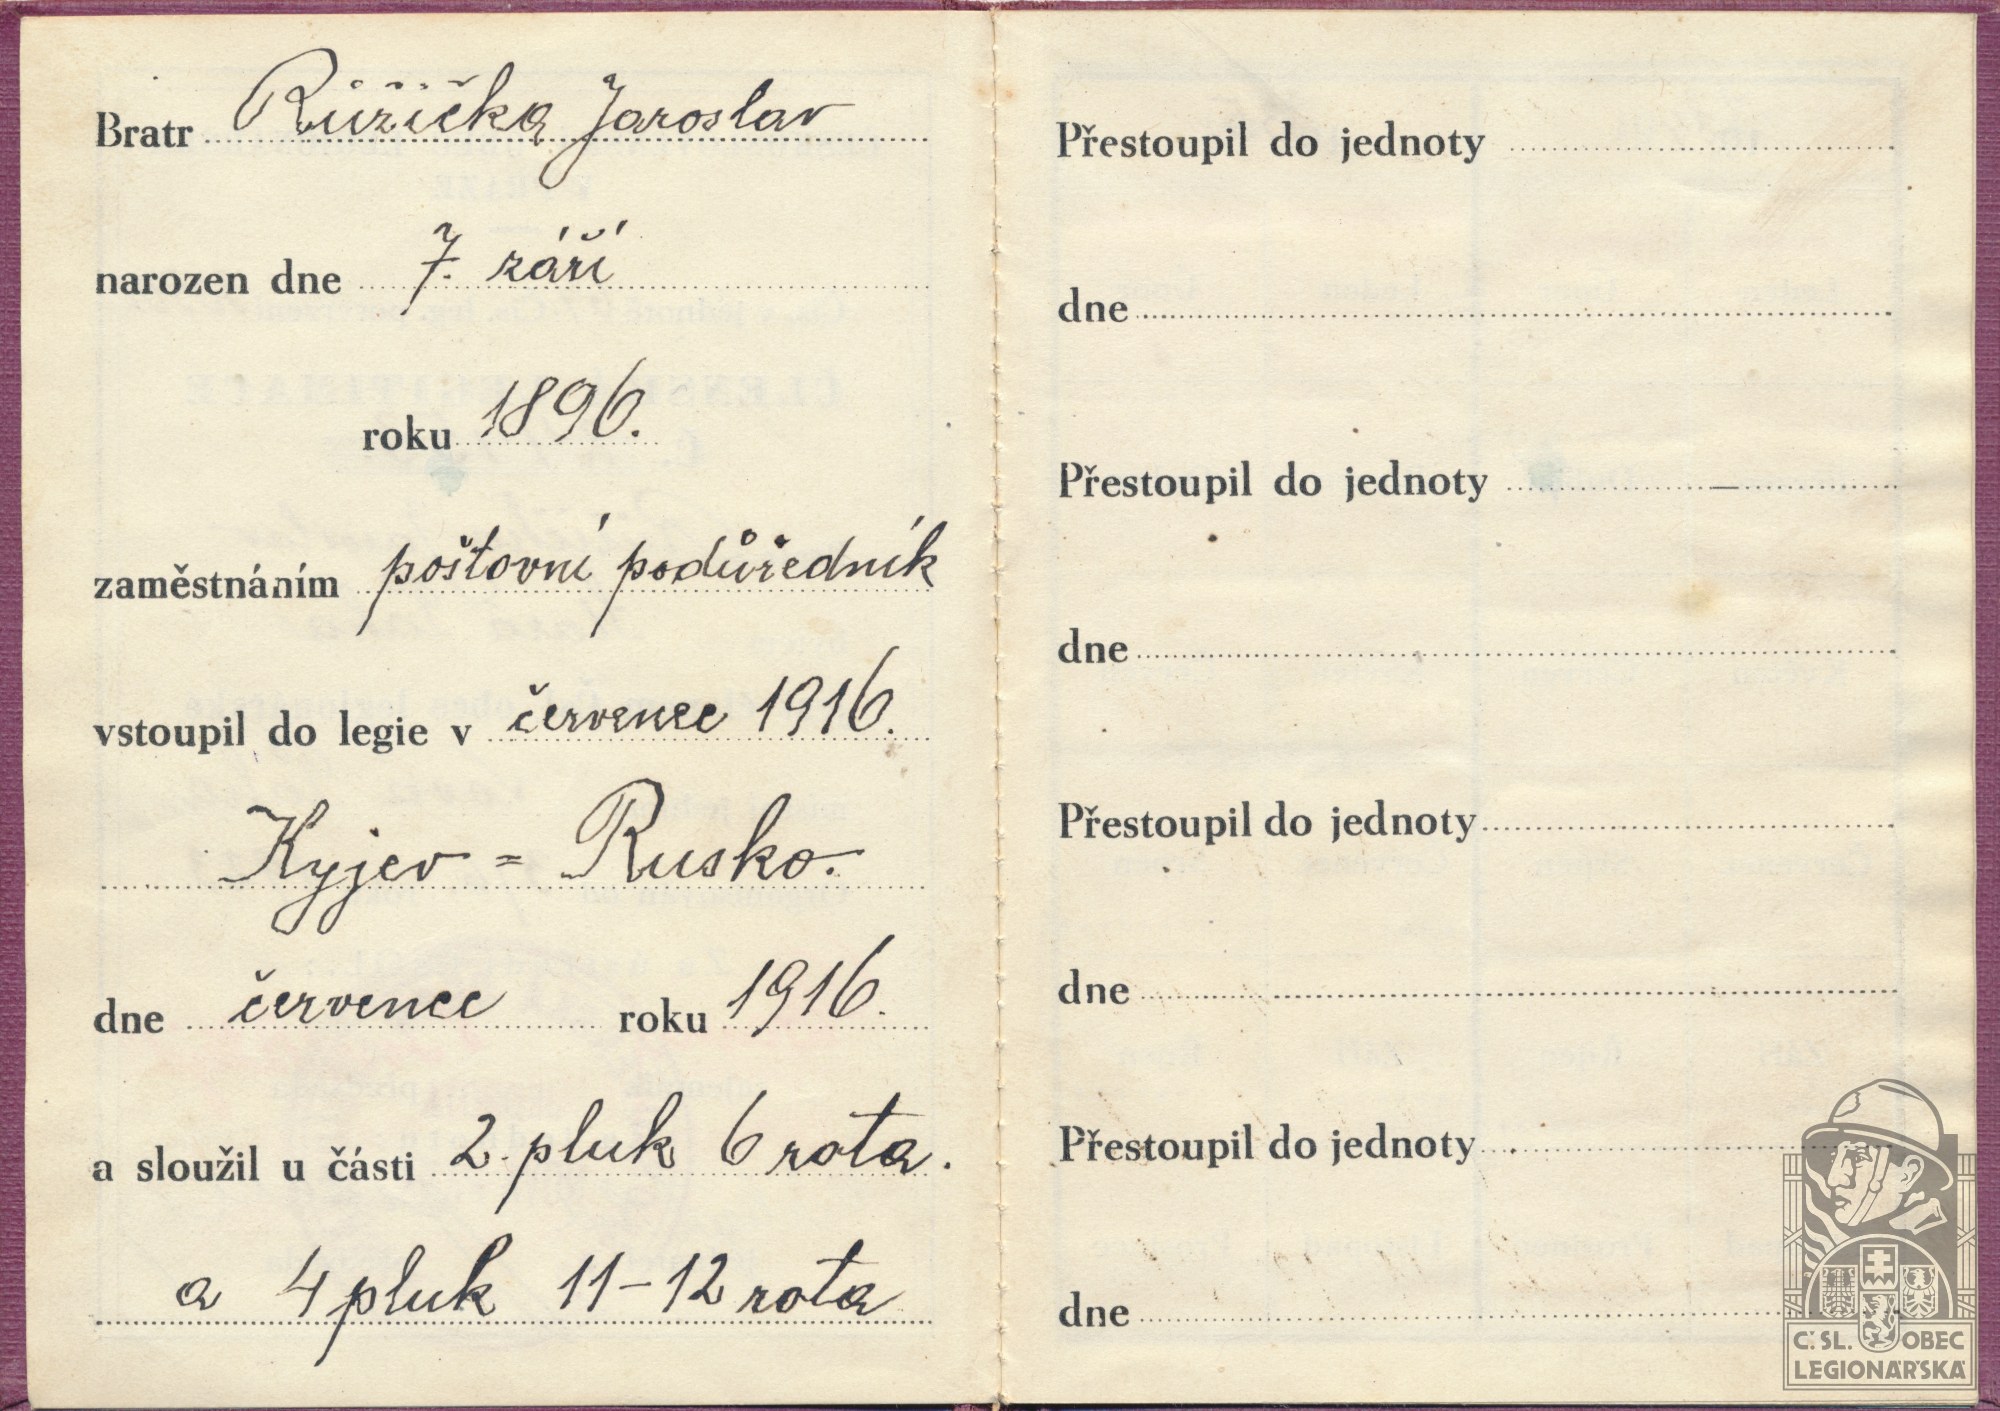 Bratr Růžička Jaroslav
narozen dne 7. září
roku 1896.
zaměstnáním poštovní podůředník
vstoupil do legie v červenec 1916.
Kyjev = Rusko.
dne červenec roku 1916.
a sloužil u části 2. pluk 6 rota.
a 4 pluk 11-12 rota
Přestoupil do jednoty
dne
Přestoupil do jednoty
dne
Přestoupil do jednoty
dne
Přestoupil do jednoty
dne
Č. SL. OBEC
LEGIONÁŘSKÁ